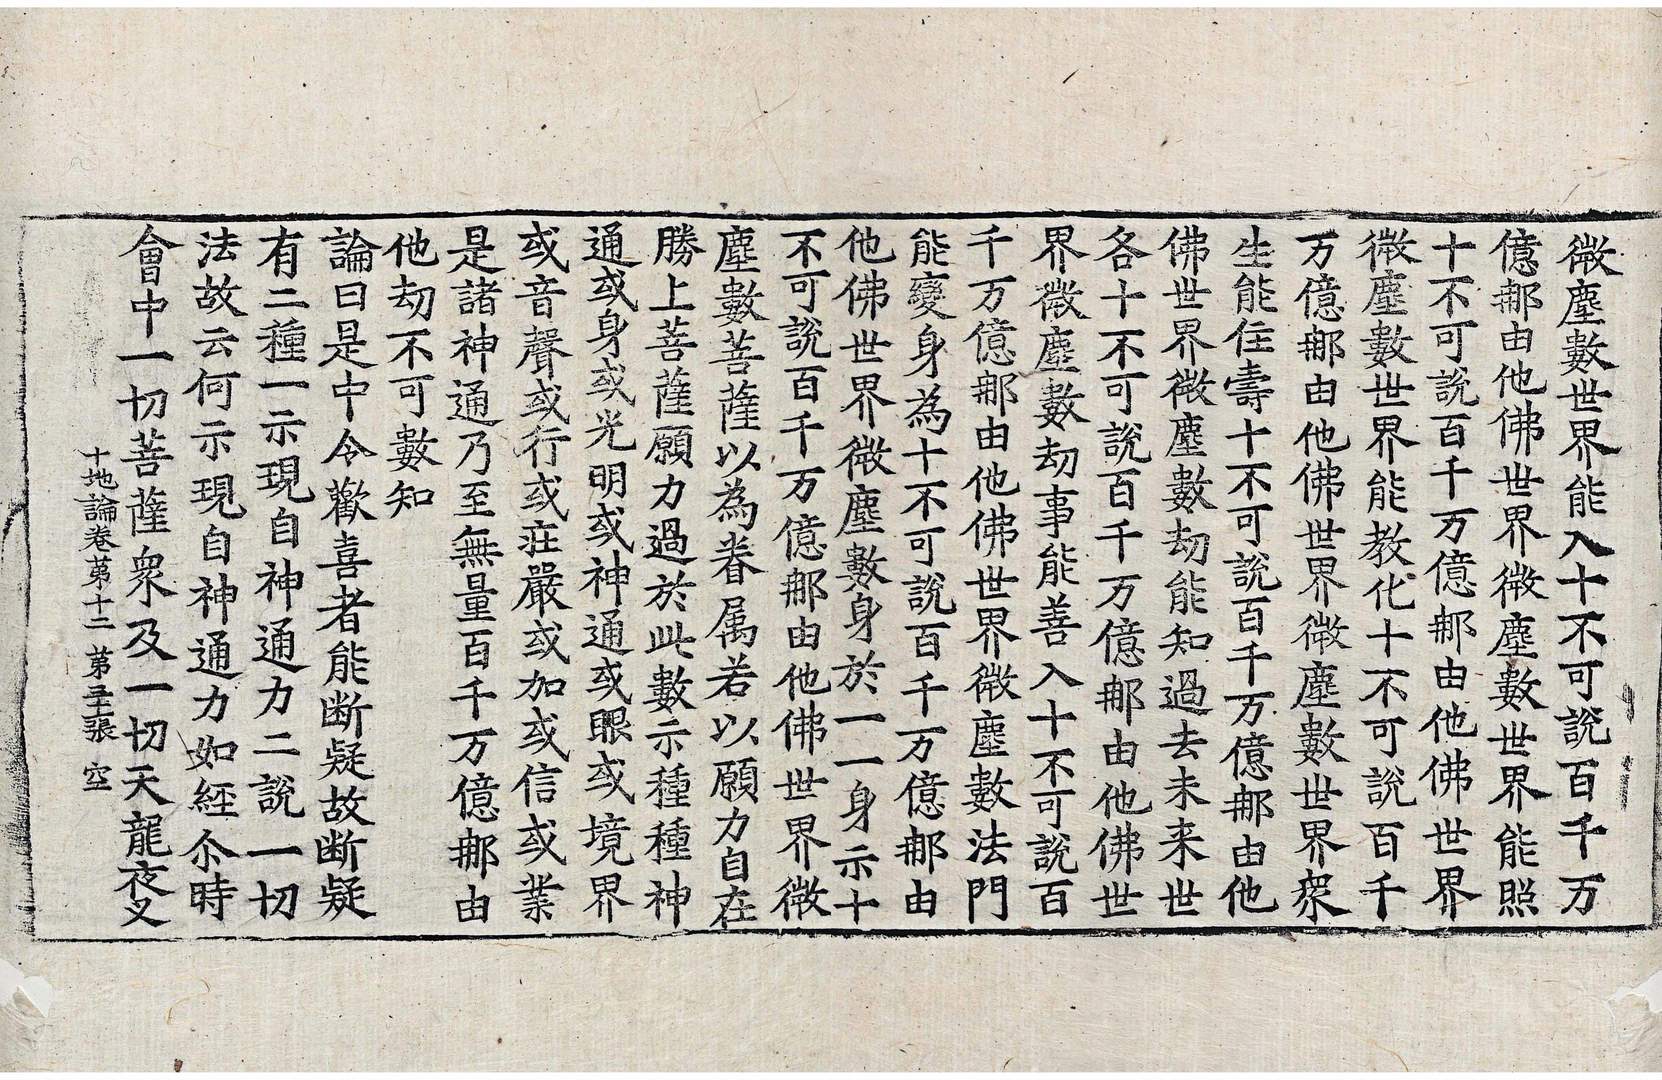 微塵數世界能入十不可説百千万
億𨚗由他佛世界微塵數世界能照
十不可説百千万億𨚗由他佛世界
微塵數世界能教化十不可説百千
万億𨚗由他佛世界微塵數世界衆
生能住壽十不可説百千万億𨚗由他
佛世界微塵數劫能知過去未来世
各十不可説百千万億𨚗由他佛世
界微塵數劫事能善入十不可説百
千万億𨚗由他佛世界微塵數法門
能變身為十不可説百千万億𨚗由
他佛世界微塵數身於一一身示十
不可説百千万億𨚗由他佛世界微
塵數菩薩以為眷属若以願力自在
勝上菩薩願力過於此數示種種神
通或身或光明或神通或眼或境界
或音聲或行或莊嚴或加或信或業
是諸神通乃至無量百千万億𨚗由
他劫不可數知
論曰是中令歡喜者能断疑故断疑
有二種一示現自神通力二説一切
法故云何示現自神通力如經尒時
會中一切菩薩衆及一切天龍夜叉
十地論卷第十二 第 張 空